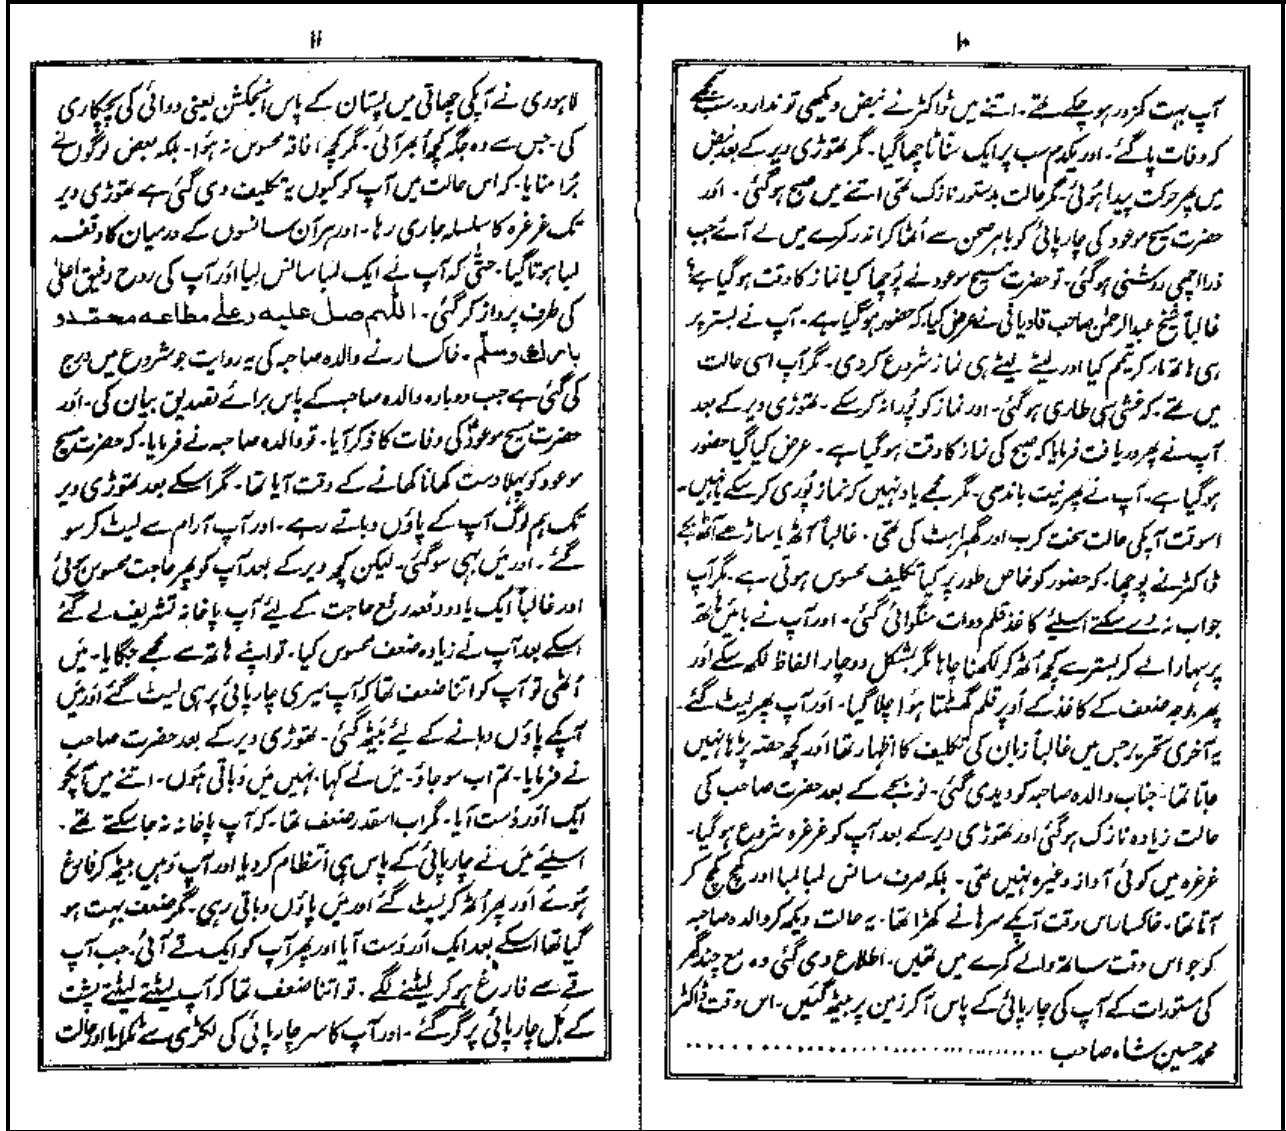 ۱۰
آپ بہت کمزور ہو چکے تھے۔ اتنے میں ڈاکٹر نے نبض دیکھی تو ندارد۔ سب سمجھے
کہ وفات پا گئے۔ اور یکدم سب پر ایک سناٹا چھا گیا۔ مگر تھوڑی دیر کے بعد نبض
میں پھر حرکت پیدا ہوئی۔ مگر حالت بدستور نازک تھی اتنے میں صبح ہو گئی۔ اور
حضرت مسیح موعود کی چارپائی کو باہر صحن سے اُٹھا کر اندر کمرے میں لے آئے جب
ذرا اچھی روشنی ہو گئی۔ تو حضرت مسیح موعود نے پُوچھا کیا نماز کا وقت ہو گیا ہے؟
غالباً شیخ عبدالرحمٰن صاحب قادیانی نے عرض کیا۔ کہ حضور ہو گیا ہے۔ آپ نے بستر پر
ہی ہاتھ مار کر تیمم کیا اور لیٹے لیٹے ہی نماز شروع کر دی۔ مگر آپ اسی حالت
میں تھے۔ کہ غشی سی طاری ہو گئی۔ اور نماز کو پُورا نہ کر سکے۔ تھوڑی دیر کے بعد
آپ نے پھر دریافت فرمایا کہ صبح کی نماز کا وقت ہو گیا ہے۔ عرض کیا گیا حضور
ہو گیا ہے۔ آپ نے پھر نیت باندھی۔ مگر مجھے یاد نہیں کہ نماز پُوری کر سکے یا نہیں۔
اسوقت آپکی حالت سخت کرب اور گھبراہٹ کی تھی۔ غالباً آٹھ یا ساڑھے آٹھ بجے
ڈاکٹر نے پوچھا۔ کہ حضور کو خاص طور پر کیا تکلیف محسوس ہوتی ہے۔ مگر آپ
جواب نہ دے سکے اسلئے کاغذ قلم دوات منگوائی گئی۔ اور آپ نے بائیں ہاتھ
پر سہارا لے کر بستر سے کچھ اُٹھ کر لکھنا چاہا مگر بمشکل دو چار الفاظ لکھ سکے اور
پھر بوجہ ضعف کے کاغذ کے اُوپر قلم گھسٹتا ہوا چلا گیا۔ اور آپ پھر لیٹ گئے۔
یہ آخری تحریر جس میں غالباً زبان کی تکلیف کا اظہار تھا اور کچھ حصہ پڑھا نہیں
جاتا تھا۔ جناب والدہ صاحبہ کو دیدی گئی۔ نو بجے کے بعد حضرت صاحب کی
حالت زیادہ نازک ہو گئی اور تھوڑی دیر کے بعد آپ کو غرغرہ شروع ہو گیا۔
غرغرہ میں کوئی آواز وغیرہ نہیں تھی۔ بلکہ صرف سانس لمبا لمبا اور کھچ کھچ کر
آتا تھا۔ خاکسار اس وقت آپکے سرہانے کھڑا تھا۔ یہ حالت دیکھ کر والدہ صاحبہ
کو جو اس وقت ساتھ والے کمرے میں تھیں۔ اطلاع دی گئی وہ مع چند گھر
کی مستورات کے آپ کی چارپائی کے پاس آ کر زمین پر بیٹھ گئیں۔ اس وقت ڈاکٹر
محمد حسین شاہ صاحب ........................................
۱۱
لاہوری نے آپکی چھاتی میں پستان کے پاس انجکشن یعنی دوائی کی پچکاری
کی۔ جس سے وہ جگہ کچھ اُبھر آئی۔ مگر کچھ افاقہ محسوس نہ ہُوا۔ بلکہ بعض لوگوں نے
بُرا منایا۔ کہ اس حالت میں آپ کو کیوں یہ تکلیف دی گئی ہے تھوڑی دیر
تک غرغرہ کا سلسلہ جاری رہا۔ اور ہر آن سانسوں کے درمیان کا وقفہ
لمبا ہوتا گیا۔ حتّٰی کہ آپ نے ایک لمبا سانس لیا اور آپ کی روح رفیق اعلیٰ
کی طرف پرواز کر گئی۔ اللّٰھم صل علیہ وعلٰی مطاعہ محمّد و
بارك وسلّم۔ خاکسار نے والدہ صاحبہ کی یہ روایت جو شروع میں درج
کی گئی ہے جب دوبارہ والدہ صاحبہ کے پاس برائے تصدیق بیان کی۔ اور
حضرت مسیح موعودؑ کی وفات کا ذکر آیا۔ تو والدہ صاحبہ نے فرمایا۔ کہ حضرت مسیح
موعود کو پہلا دست کھانا کھانے کے وقت آیا تھا۔ مگر اسکے بعد تھوڑی دیر
تک ہم لوگ آپ کے پاؤں دباتے رہے۔ اور آپ آرام سے لیٹ کر سو
گئے۔ اور میں بھی سو گئی۔ لیکن کچھ دیر کے بعد آپ کو پھر حاجت محسوس ہوئی
اور غالباً ایک یا دو دفعہ رفع حاجت کے لئے آپ پاخانہ تشریف لے گئے
اسکے بعد آپ نے زیادہ ضعف محسوس کیا۔ تو اپنے ہاتھ سے مجھے جگایا۔ میں
اُٹھی تو آپ کو اتنا ضعف تھا کہ آپ میری چارپائی پر ہی لیٹ گئے اور میں
آپکے پاؤں دبانے کے لئے بیٹھ گئی۔ تھوڑی دیر کے بعد حضرت صاحب
نے فرمایا۔ تم اب سو جاؤ۔ میں نے کہا۔ نہیں میں دباتی ہوں۔ اتنے میں آپکو
ایک اور دست آیا۔ مگر اب اسقدر ضعف تھا۔ کہ آپ پاخانہ نہ جا سکتے تھے۔
اسلئے میں نے چارپائی کے پاس ہی انتظام کر دیا اور آپ وہیں بیٹھ کر فارغ
ہُوئے اور پھر اُٹھ کر لیٹ گئے اور میں پاؤں دباتی رہی۔ مگر ضعف بہت ہو
گیا تھا اسکے بعد ایک اور دست آیا اور پھر آپ کو ایک قے آئی۔ جب آپ
قے سے فارغ ہو کر لیٹنے لگے۔ تو اتنا ضعف تھا کہ آپ لیٹتے لیٹتے پشت
کے بَل چارپائی پر گر گئے۔ اور آپ کا سر چارپائی کی لکڑی سے ٹکرایا اور حالت